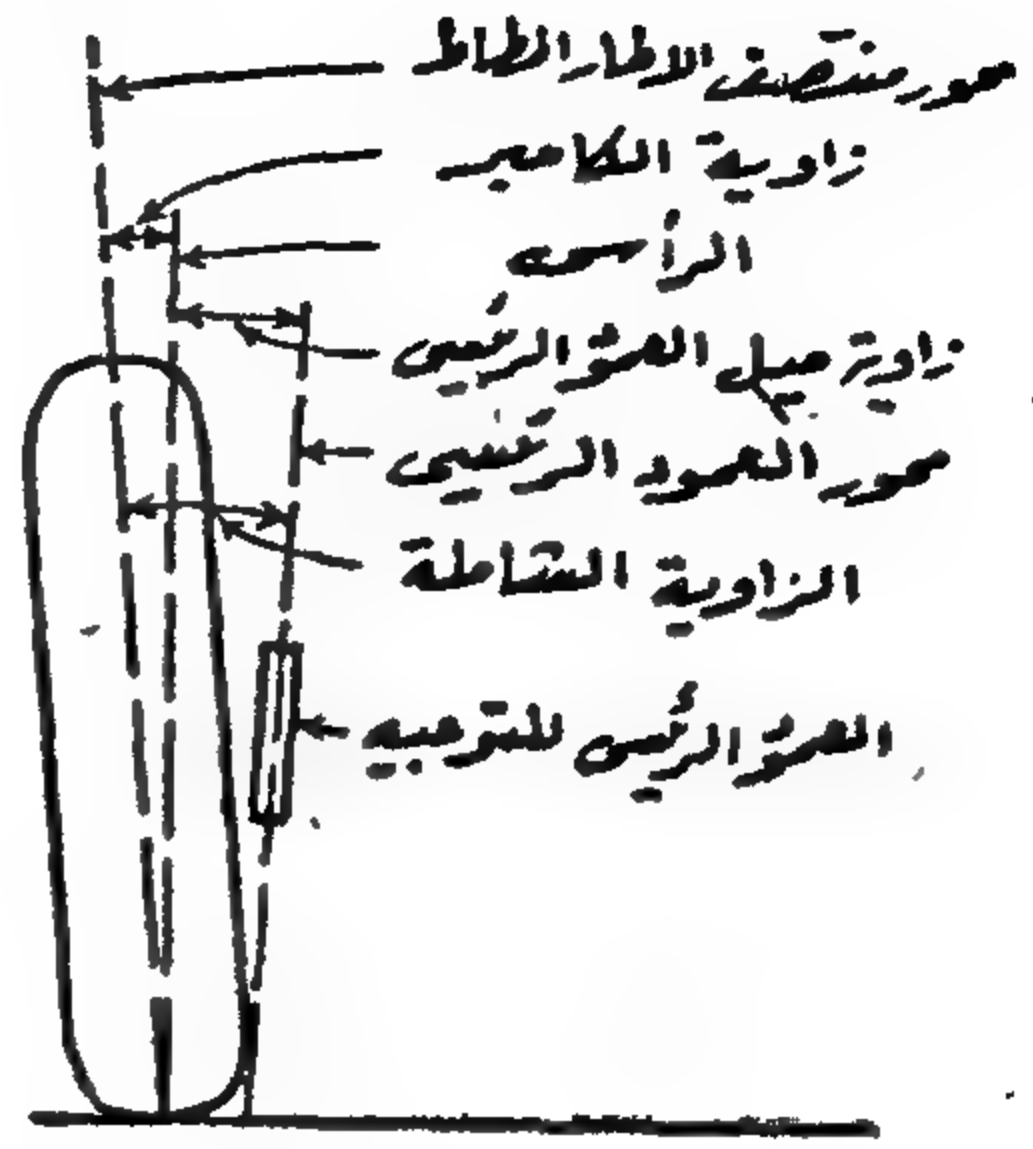 محور منتصف الاطار المطاط
زاوية الكامبر
الرأسى
زاوية ميل العمود الرئيسى
محور العمود الرئيسى
الزاوية الشاملة
العمود الرئيسى للتوجيه